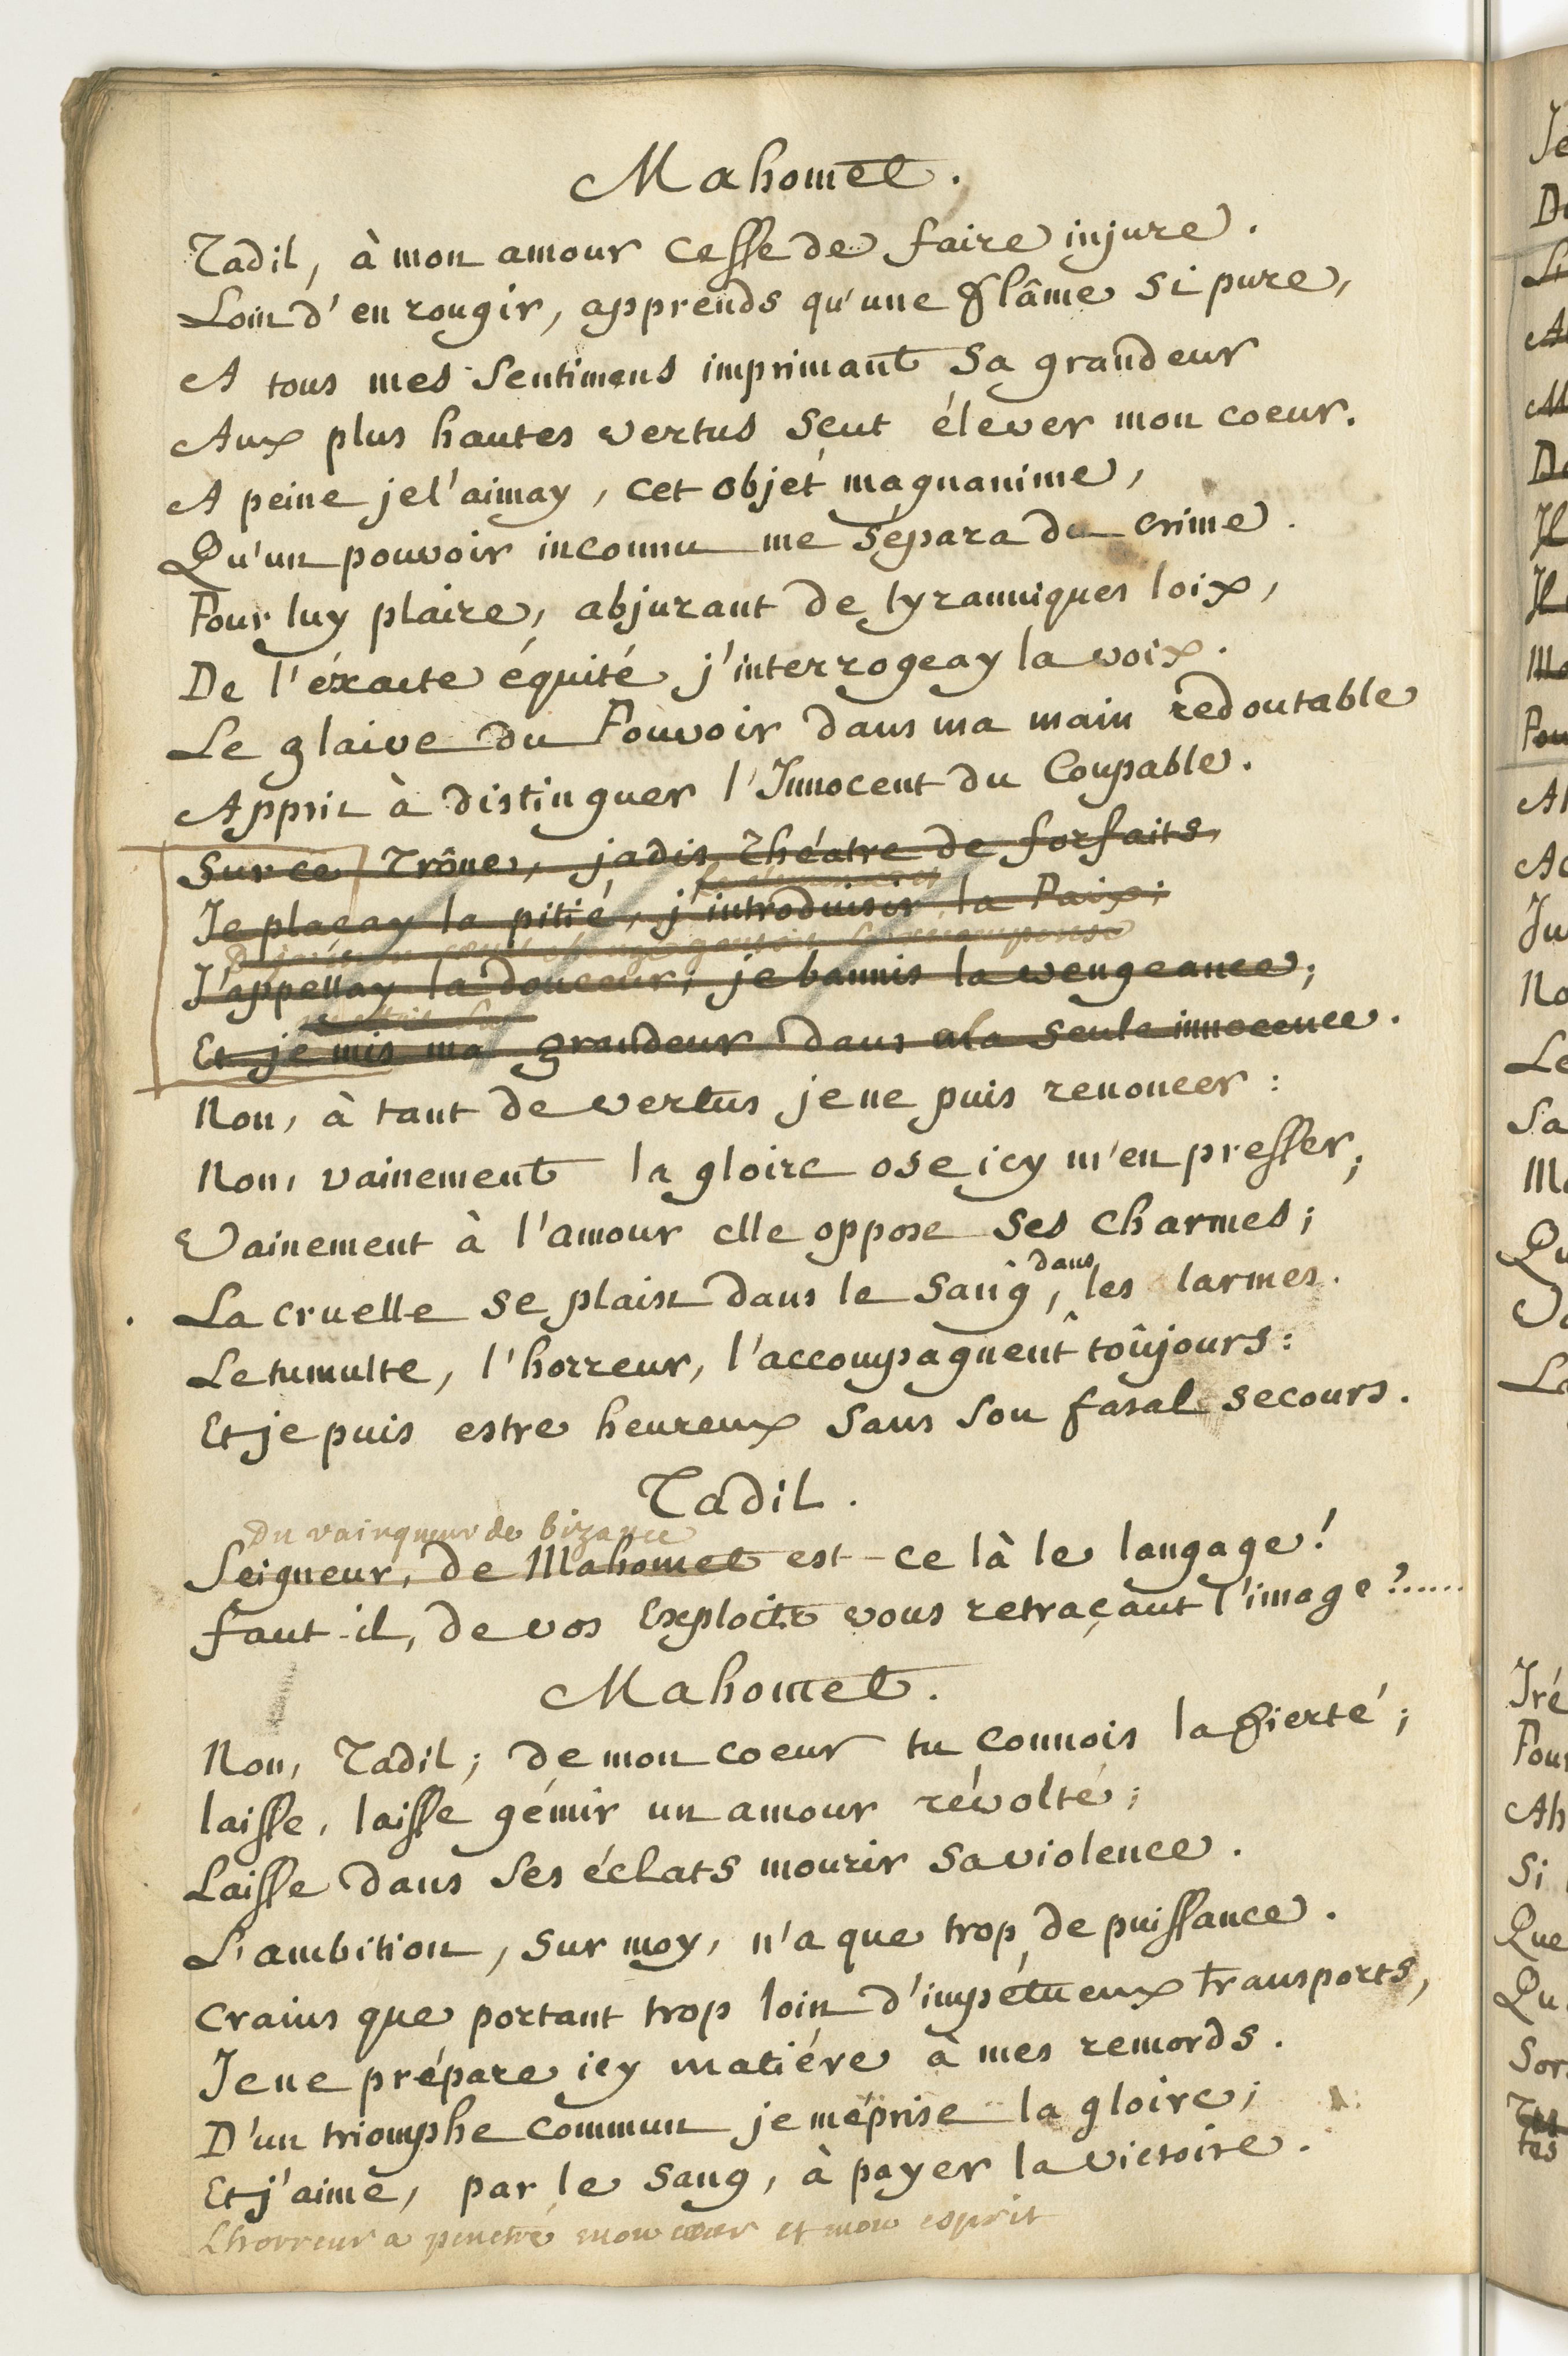 Mahomet.
Tadil, à mon amour cesse de faire injure.
Loin d'en rougir, apprends qu'une flâme si pure,
A tous mes sentimens imprimant sa grandeur
Aux plus hautes vertus sçut élever mon coeur.
A peine je l'aimay, cet objet magnanime,
Qu'un pouvoir inconnu me sépara du crime.
Pour luy plaire, abjurant de tyranniques loix,
De l'éxacte équité j'interrogeay la voix.
Le glaive du Pouvoir dans ma main redoutable
Apprit à distinguer l'Innocent du Coupable.
Sur ce Trône, jadis Théatre de forfaits,
Je plaçay la pitié, j'introduisis la Paix;
J'appellay la douceur; je bannis la vengeance;
Et je mis ma grandeur dans la seule innocence.
Non, à tant de vertus je ne puis renoncer:
Non, vainement la gloire ose icy m'en presser;
Vainement à l'amour elle oppose ses charmes;
dans
La cruelle se plaist dans le sang, les larmes.
Le tumulte, l'horreur, l'accompagnent toûjours:
Et je puis estre heureux sans son fatal secours.
Tadil.
Du vainqueur de bizance
Seigneur, de Mahomet est-ce là le langage!
faut-il, de vos Exploits vous retraçant l'image?......
Mahomet.
Non, Tadil; de mon coeur tu connois la fierté;
laisse, laisse gémir un amour révolté;
Laisse dans ses éclats mourir sa violence.
L'ambition, sur moy, n'a que trop de puissance.
Crains que portant trop loin d'impétueux transports,
Je ne prépare icy matiére à mes remords.
D'un triomphe commun je méprise la gloire;
Et j'aime, par le sang, à payer la victoire.
Lhorreur a penetré mon coeur et mon esprit
Je